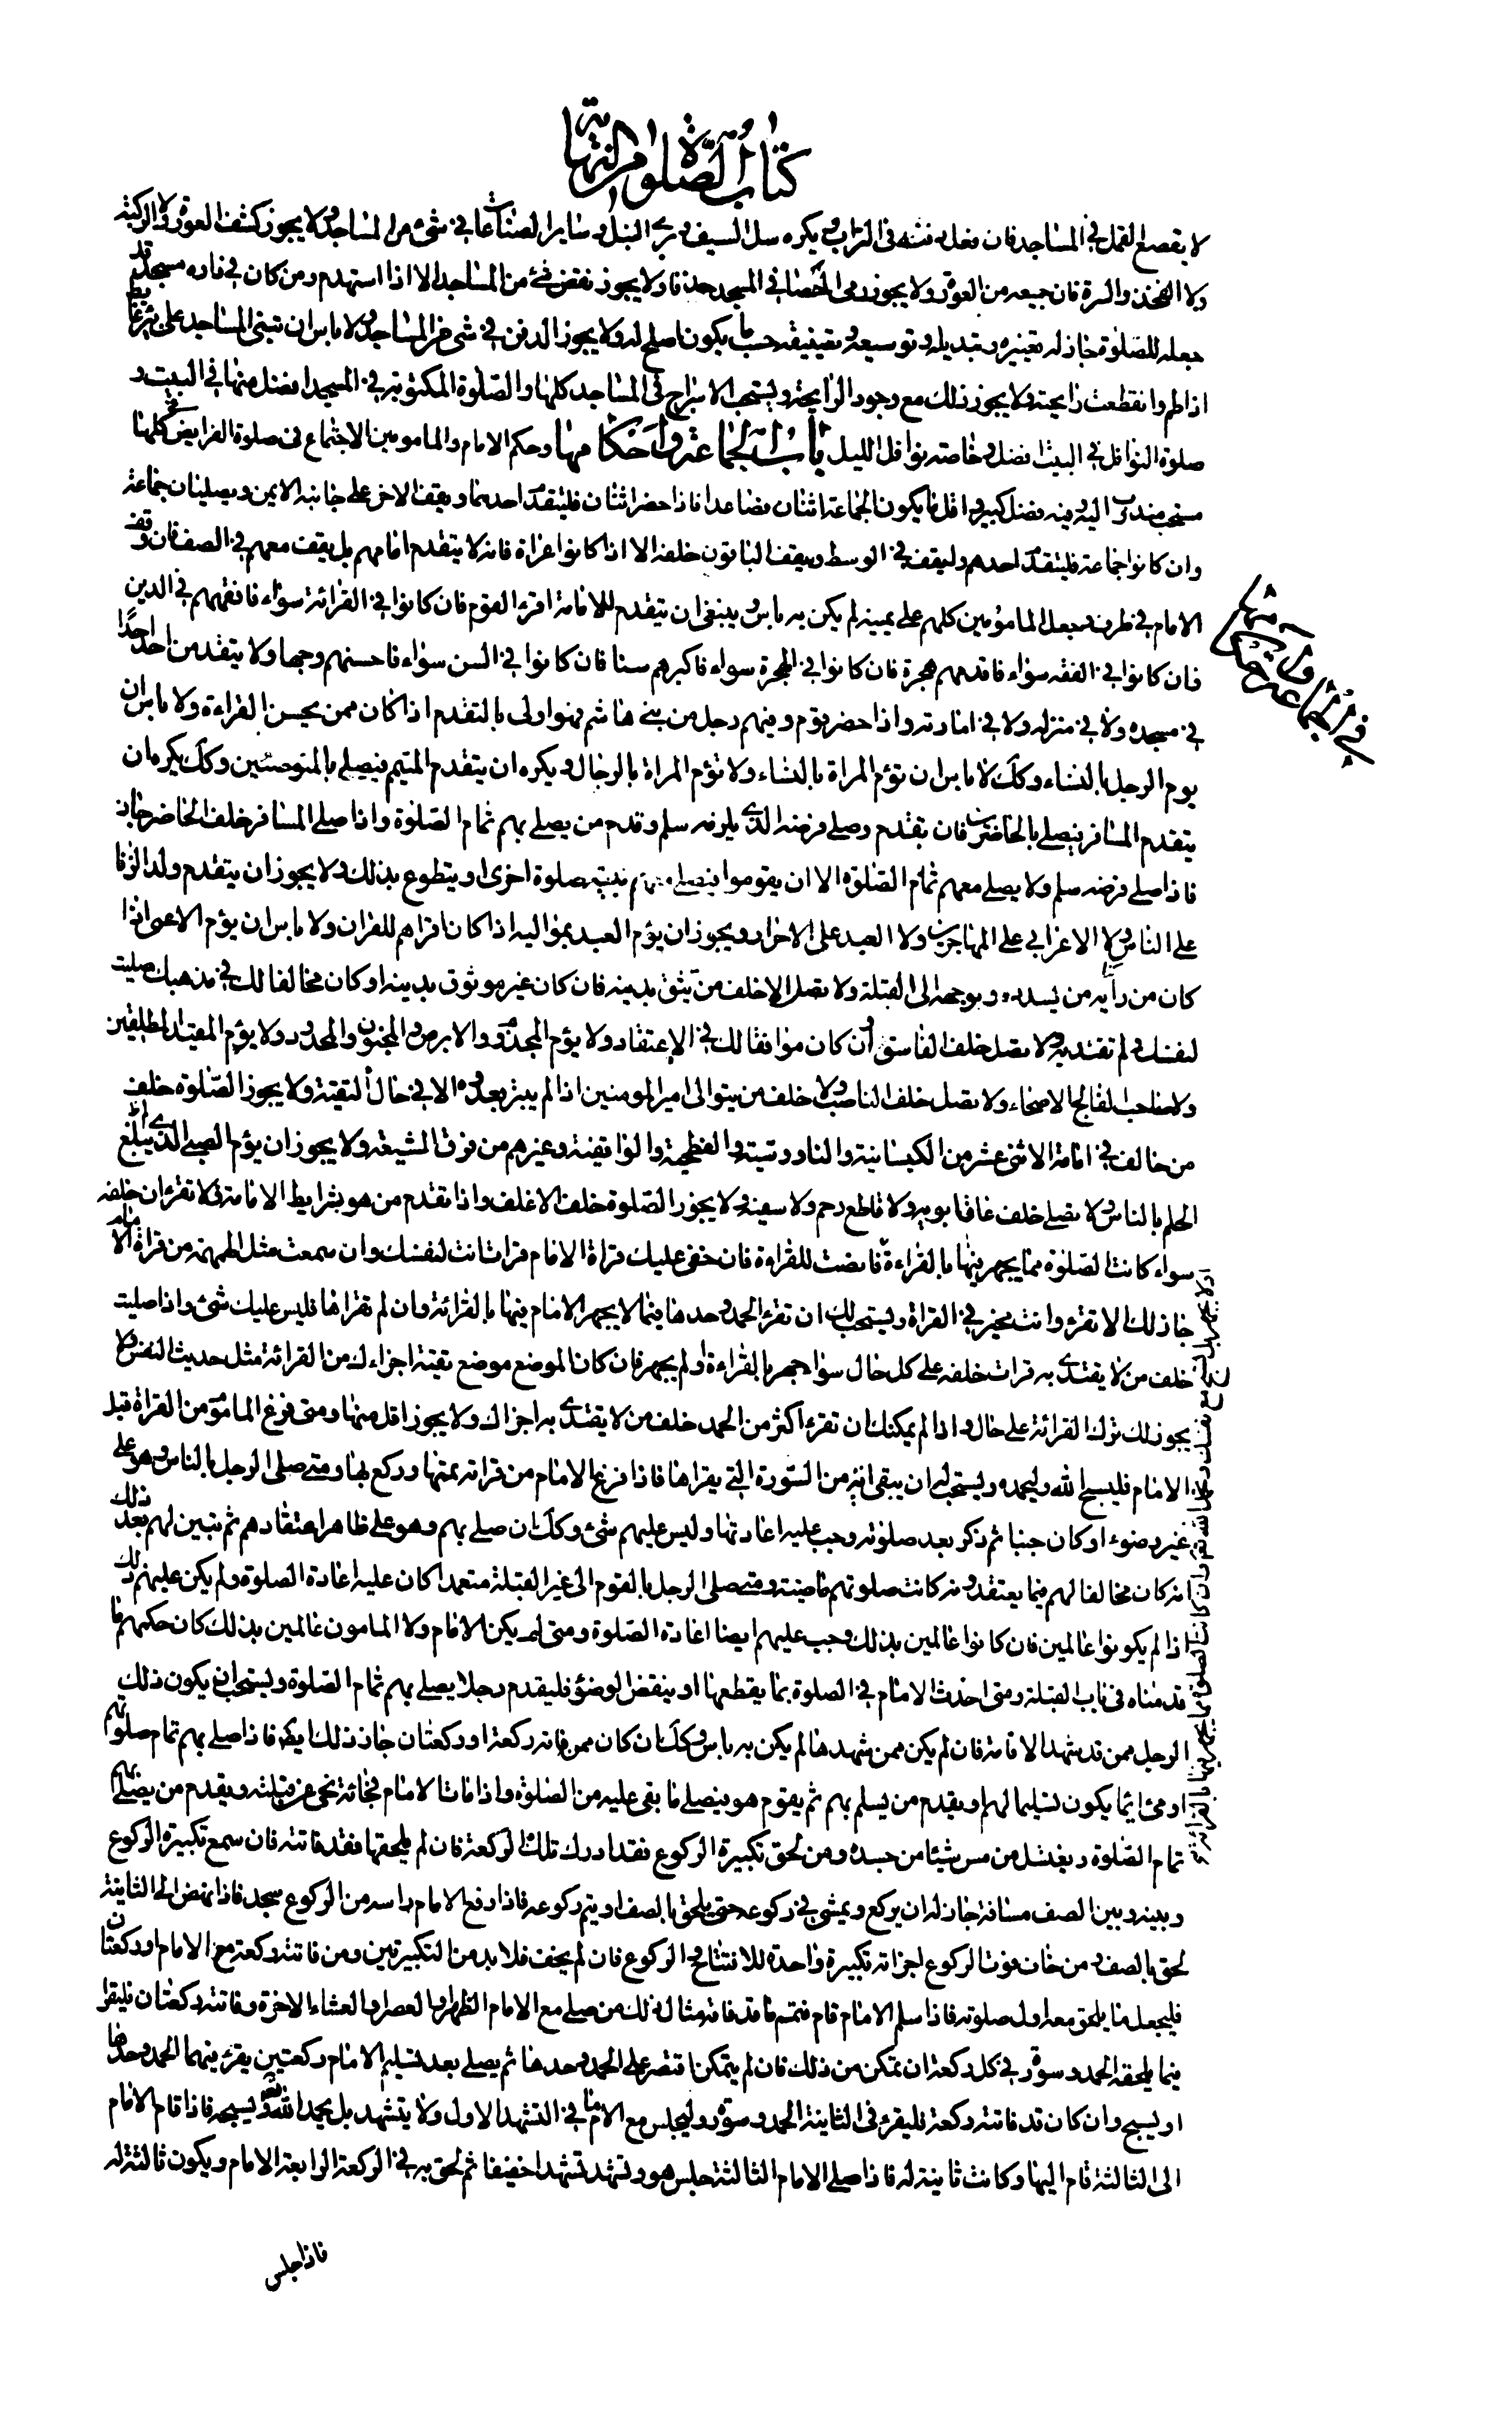 كتاب الصلوة من النهاية
لا يقصع القمل في المساجد فان فعل دفنه فى التراب ويكره سل السيف وبري النبل وساير الصناعات في شئ من المساجد ولا يجوز كشف العورة ولا الركبة
ولا الفخذ والسرة فان جميعه من العورة ولا يجوز رمى الحصا في المسجد حذفا ولا يجوز نقض شئ من المساجد الا اذا استهدم ومن كان في داره مسجد قد
جعله للصلوة جاز له تغييره وتبديله وتوسيعه وتضييقه حسب ما يكون اصلح له ولا يجوز الدفن في شئ من المساجد ولا باس ان تبنى المساجد على بئر غائط
اذا طم وانقطعت رايحته ولا يجوز ذلك مع وجود الرايحة ويستحب الاسراج فى المساجد كلها والصلوة المكتوبة في المسجد افضل منها في البيت و
صلوة النوافل في البيت افضل وخاصة نوافل الليل باب الجماعة واحكامها وحكم الامام والمامومين الاجتماع فى صلوة الفرايض كلها
مستحب مندوب اليه وفيه فضل كبير واقل ما يكون الجماعة اثنان فصاعدا فاذا حضر اثنان فليتقدم احدهما ويقف الاخر على جانبه الايمن ويصليان جماعة
وان كانوا جماعة فليتقدم احدهم وليقف في الوسط ويقف الباقون خلفه الا اذا كانوا عراة فانه لا يتقدم امامهم بل يقف معهم في الصف فان وقف
الامام في طرف وجعل المامومين كلهم على يمينه لم يكن به باس وينبغي ان يتقدم للامامة اقرء القوم فان كانوا في القرائة سواء فافقههم في الدين
فان كانوا في الفقه سواء فاقدمهم هجرة فان كانوا في الهجرة سواء فاكبرهم سنا فان كانوا في السن سواء فاحسنهم وجها ولا يتقدمن احد احدا
في مسجده ولا في منزله ولا في امارته واذا حضر قوم وفيهم رجل من بني هاشم فهو اولى بالتقدم اذا كان ممن يحسن القراءة ولا باس ان
يوم الرجل بالنساء وكك لا باس ان تؤم المراة بالنساء ولا تؤم المراة بالرجال ويكره ان يتقدم المتيمم فيصلي بالمتوضئين وكك يكره ان
يتقدم المسافر فيصلي بالحاضرين فان تقدم وصلى فرضه الذي يلزمه سلم وقدم من يصلي بهم تمام الصلوة واذا صلى المسافر خلف الحاضر جاز
فاذا صلى فرضه سلم ولا يصلي معهم تمام الصلوة الا ان يقوموا فيصلي معهم بنية صلوة اخرى او يتطوع بذلك ولا يجوز ان يتقدم ولد الزنا
على الناس ولا الاعرابي على المهاجرين ولا العبد على الاحرار ويجوز ان يؤم العبد بمواليه اذا كان اقراهم للقران ولا باس ان يؤم الاعمى اذا
كان من رأيه من يسدده ويوجهه الى القبلة ولا تصل الا خلف من تثق بدينه فان كان غير موثوق بدينه او كان مخالفا لك في مذهبك صليت
لنفسك ولم تقتد به ولا تصل خلف الفاسق وان كان موافقا لك في الاعتقاد ولا يؤم المجذوم والابرص والمجنون والمحدود ولا يؤم المقيد المطلقين
ولا صاحب الفالج الاصحاء ولا تصل خلف الناصب ولا خلف من يتوالى امير المومنين اذا لم يبرء من عدوه الا في حال التقية ولا يجوز الصلوة خلف
من خالف في امامة الاثنى عشر من الكيسانية والناووسية والفطحية والواقفية وغيرهم من فرق الشيعة ولا يجوز ان يؤم الصبي الذي لم يبلغ
الحلم بالناس ولا تصلي خلف عاق ابويه ولا قاطع رحم ولا سفيه ولا يجوز الصلوة خلف الاغلف واذا تقدم من هو بشرايط الامامة فلا تقرءن خلفه
سواء كانت الصلوة مما يجهر فيها بالقراءة فانصت للقراءة فان خفى عليك قراة الامام قرات انت لنفسك وان سمعت مثل الهمهمة من قراة الامام
جاز لك الا تقرء وانت مخير في القراة ويستحب لك ان تقرء الحمد وحدها فيما لا يجهر الامام فيها بالقرائة وان لم تقراها فليس عليك شئ واذا صليت
خلف من لا يقتدى به قرات خلفه على كل حال سواء جهر بالقراءة او لم يجهر فان كان الموضع موضع تقية اجزاءك من القرائة مثل حديث النفس ولا
يجوز لك ترك القرائة على حال واذا لم يمكنك ان تقرء اكثر من الحمد خلف من لا يقتدى به اجزاك ولا يجوز اقل منها ومتى فرغ الماموم من القراة قبل
الامام فليسبح لله وليحمده ويستحب له ان يبقى اية من السورة التي يقراها فاذا فرغ الامام من قراته يمتمها وركع بها ومتى صلى الرجل بالناس وهو على
غير وضوء او كان جنبا ثم ذكر بعد صلوته وجب عليه اعادتها وليس عليهم شئ وكك ان صلى بهم وهو على ظاهر اعتقادهم ثم تبين لهم بعد ذلك
انه كان مخالفا لهم فيما يعتقدونه كانت صلوتهم ماضية ومتى صلى الرجل بالقوم الى غير القبلة متعمدا كان عليه اعادة الصلوة ولم يكن عليهم ذلك
اذا لم يكونوا عالمين فان كانوا عالمين بذلك وجب عليهم ايضا اعادة الصلوة ومتى لم يكن الامام ولا المامون عالمين بذلك كان حكمهم ما
قدمناه فى باب القبلة ومتى احدث الامام في الصلوة بما يقطعها او ينقض الوضوء فليقدم رجلا يصلي بهم تمام الصلوة ويستحب ان يكون ذلك
الرجل ممن قد شهد الاقامة فان لم يكن ممن شهدها لم يكن به باس وكك ان كان ممن فاته ركعة او ركعتان جاز ذلك ايض فاذا صلى بهم تمام صلوتهم
اومئ ايماء يكون تسليما لهم او يقدم من يسلم بهم ثم يقوم هو فيصلي ما بقى عليه من الصلوة واذا مات الامام فجائة نحى عن قبلته ويقدم من يصلي بهم
تمام الصلوة ويغتسل من مس شيئا من جسده ومن لحق تكبيرة الركوع فقد ادرك تلك الركعة فان لم يلحقها فقد فاتته فان سمع تكبيرة الركوع
وبينه وبين الصف مسافة جاز له ان يركع ويمشى في ركوعه حتى يلحق بالصف او يتم ركوعه فاذا رفع الامام راسه من الركوع سجد فاذا نهض الى الثانية
لحق بالصف ومن خاف فوت الركوع اجزاته تكبيرة واحدة للافتتاح والركوع فان لم يخف فلا بد من التكبيرتين ومن فاتته ركعة مع الامام او ركعتان
فليجعل ما يلحق معه اول صلوته فاذا سلم الامام قام فتمم ما قد فاته مثال ذلك من صلى مع الامام الظهر او العصر او العشاء الاخرة وفاتته ركعتان فليقرا
فيما يلحقه الحمد وسورة في كل ركعة ان تمكن من ذلك فان لم يتمكن اقتصر على الحمد وحدها ثم يصلي بعد تسليم الامام ركعتين يقرء فيهما الحمد وحدها
او يسبح وان كان قد فاتته ركعة فليقرء فى الثانية الحمد وسورة وليجلس مع الامام في التشهد الاول ولا يتشهد بل يحمد الله ويسبحه فاذا قام الامام
الى الثالثة قام اليها وكانت ثانية له فاذا صلى الامام الثالثة جلس هو وتشهد تشهدا خفيفا ثم لحق به في الركعة الرابعة الامام ويكون ثالثة له
فاذا جلس
في الجماعة واحكامها
او لا يجهر بل تسبح مع نفسك وتحمد الله تع وان كانت الصلوة مما يجهر فيها بالقرائة